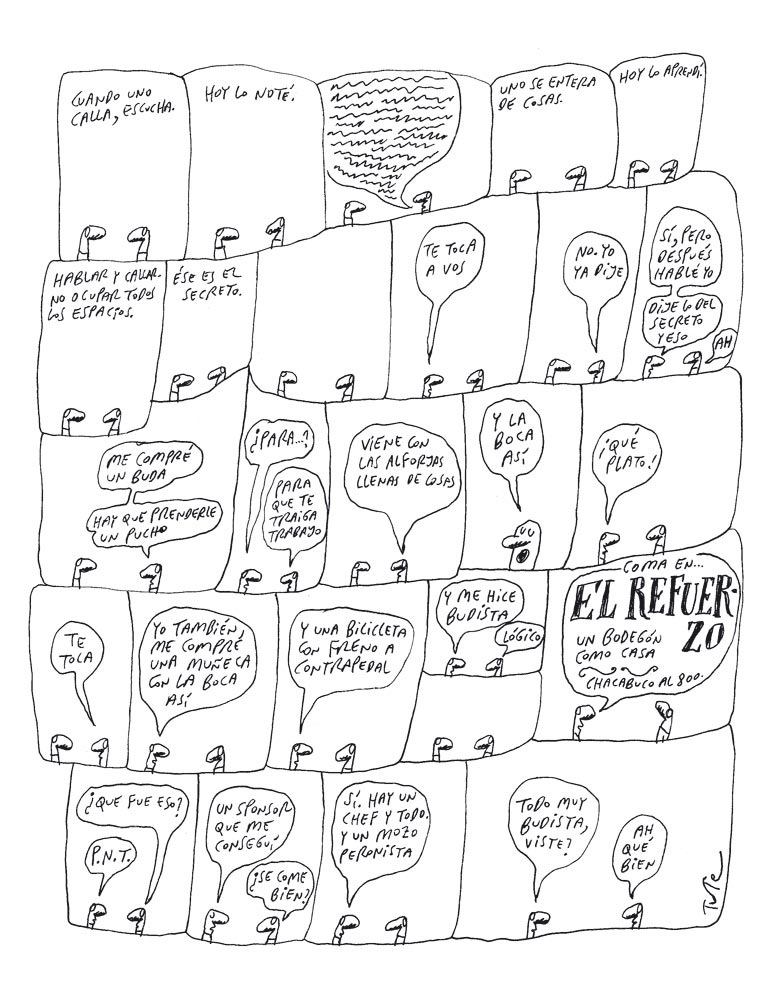 CUANDO UNO
CALLA, ESCUCHA.
HOY LO NOTÉ.
UNO SE ENTERA
DE COSAS.
HOY LO APRENDÍ.
HABLAR Y CALLAR.
NO OCUPAR TODOS
LOS ESPACIOS.
ÉSE ES EL
SECRETO.
TE TOCA
A VOS
NO. YO
YA DIJE
SÍ, PERO
DESPUÉS
HABLÉ YO
DIJE LO DEL
SECRETO
Y ESO
AH
ME COMPRÉ
UN BUDA
HAY QUE PRENDERLE
UN PUCHO
¿PARA...?
PARA
QUE TE
TRAIGA
TRABAJO
VIENE CON
LAS ALFORJAS
LLENAS DE COSAS
Y LA
BOCA
ASÍ
¡QUÉ
PLATO!
TE
TOCA
YO TAMBIÉN,
ME COMPRÉ
UNA MUÑECA
CON LA BOCA
ASÍ
Y UNA BICICLETA
CON FRENO A
CONTRAPEDAL
Y ME HICE
BUDISTA
LÓGICO
COMA EN...
EL REFUER-
ZO
UN BODEGÓN
COMO CASA
CHACABUCO AL 800.
¿QUE FUE ESO?
P.N.T.
UN SPONSOR
QUE ME
CONSEGUÍ
¿SE COME
BIEN?
SÍ. HAY UN
CHEF Y TODO.
Y UN MOZO
PERONISTA
TODO MUY
BUDISTA,
VISTE?
AH
QUÉ
BIEN
Tute